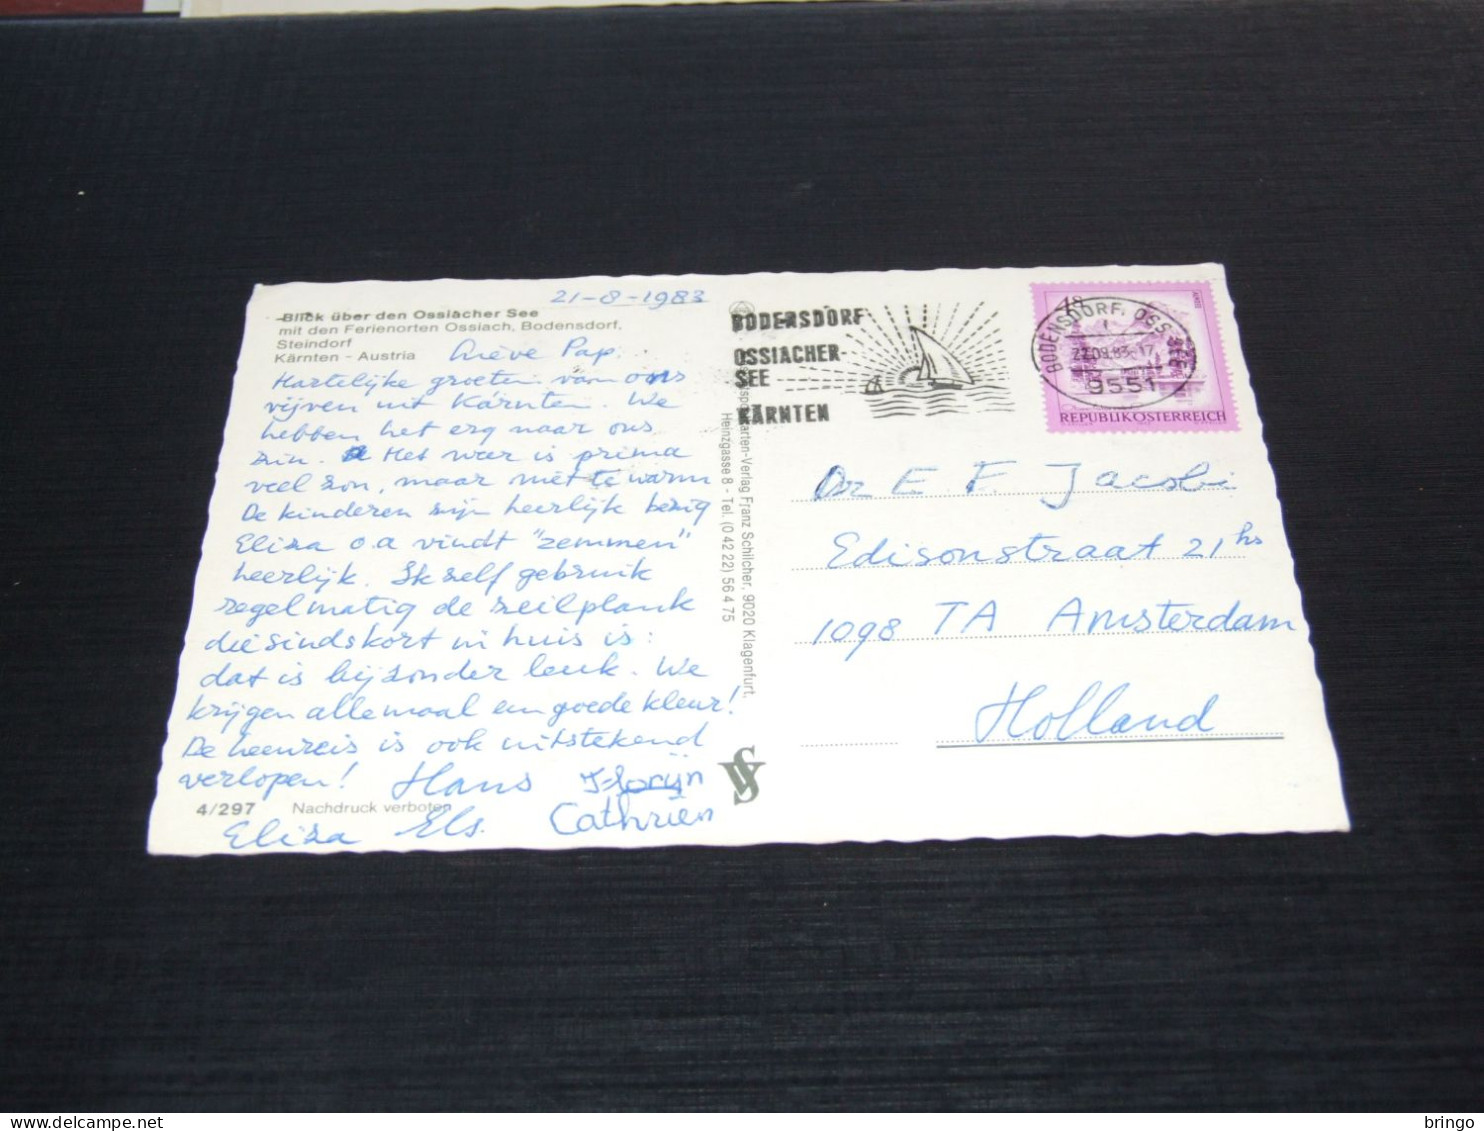 21-8-1983
Blick über den Ossiacher See
mit den Ferienorten Ossiach, Bodensdorf,
Steindorf
Kärnten - Austria
Lieve Pap.
Hartelijke groeten van ons
vijven uit Kärnten. We
hebben het erg naar ons
zin. Het weer is prima
veel zon, maar niet te warm
De kinderen zijn heerlijk bezig
Eliza o.a vindt "zemmen"
heerlijk. Ik zelf gebruik
regelmatig de zeilplank
die sinds kort in huis is:
dat is bijzonder leuk. We
krijgen allemaal een goede kleur!
De heenreis is ook uitstekend
verlopen! Hans Florijn
4/297 Nachdruck verboten
Eliza Els. Cathrien
Heinzgasse 8 - Tel. (0 42 22) 56 4 75
karten-Verlag Franz Schilcher, 9020 Klagenfurt.
BODENSDORF
OSSIACHER-
SEE
KÄRNTEN
BODENSDORF, OSS. SEE
9551
REPUBLIK ÖSTERREICH
Dr E F. Jacobi
Edisonstraat 21 hs
1098 TA Amsterdam
Holland
bringo